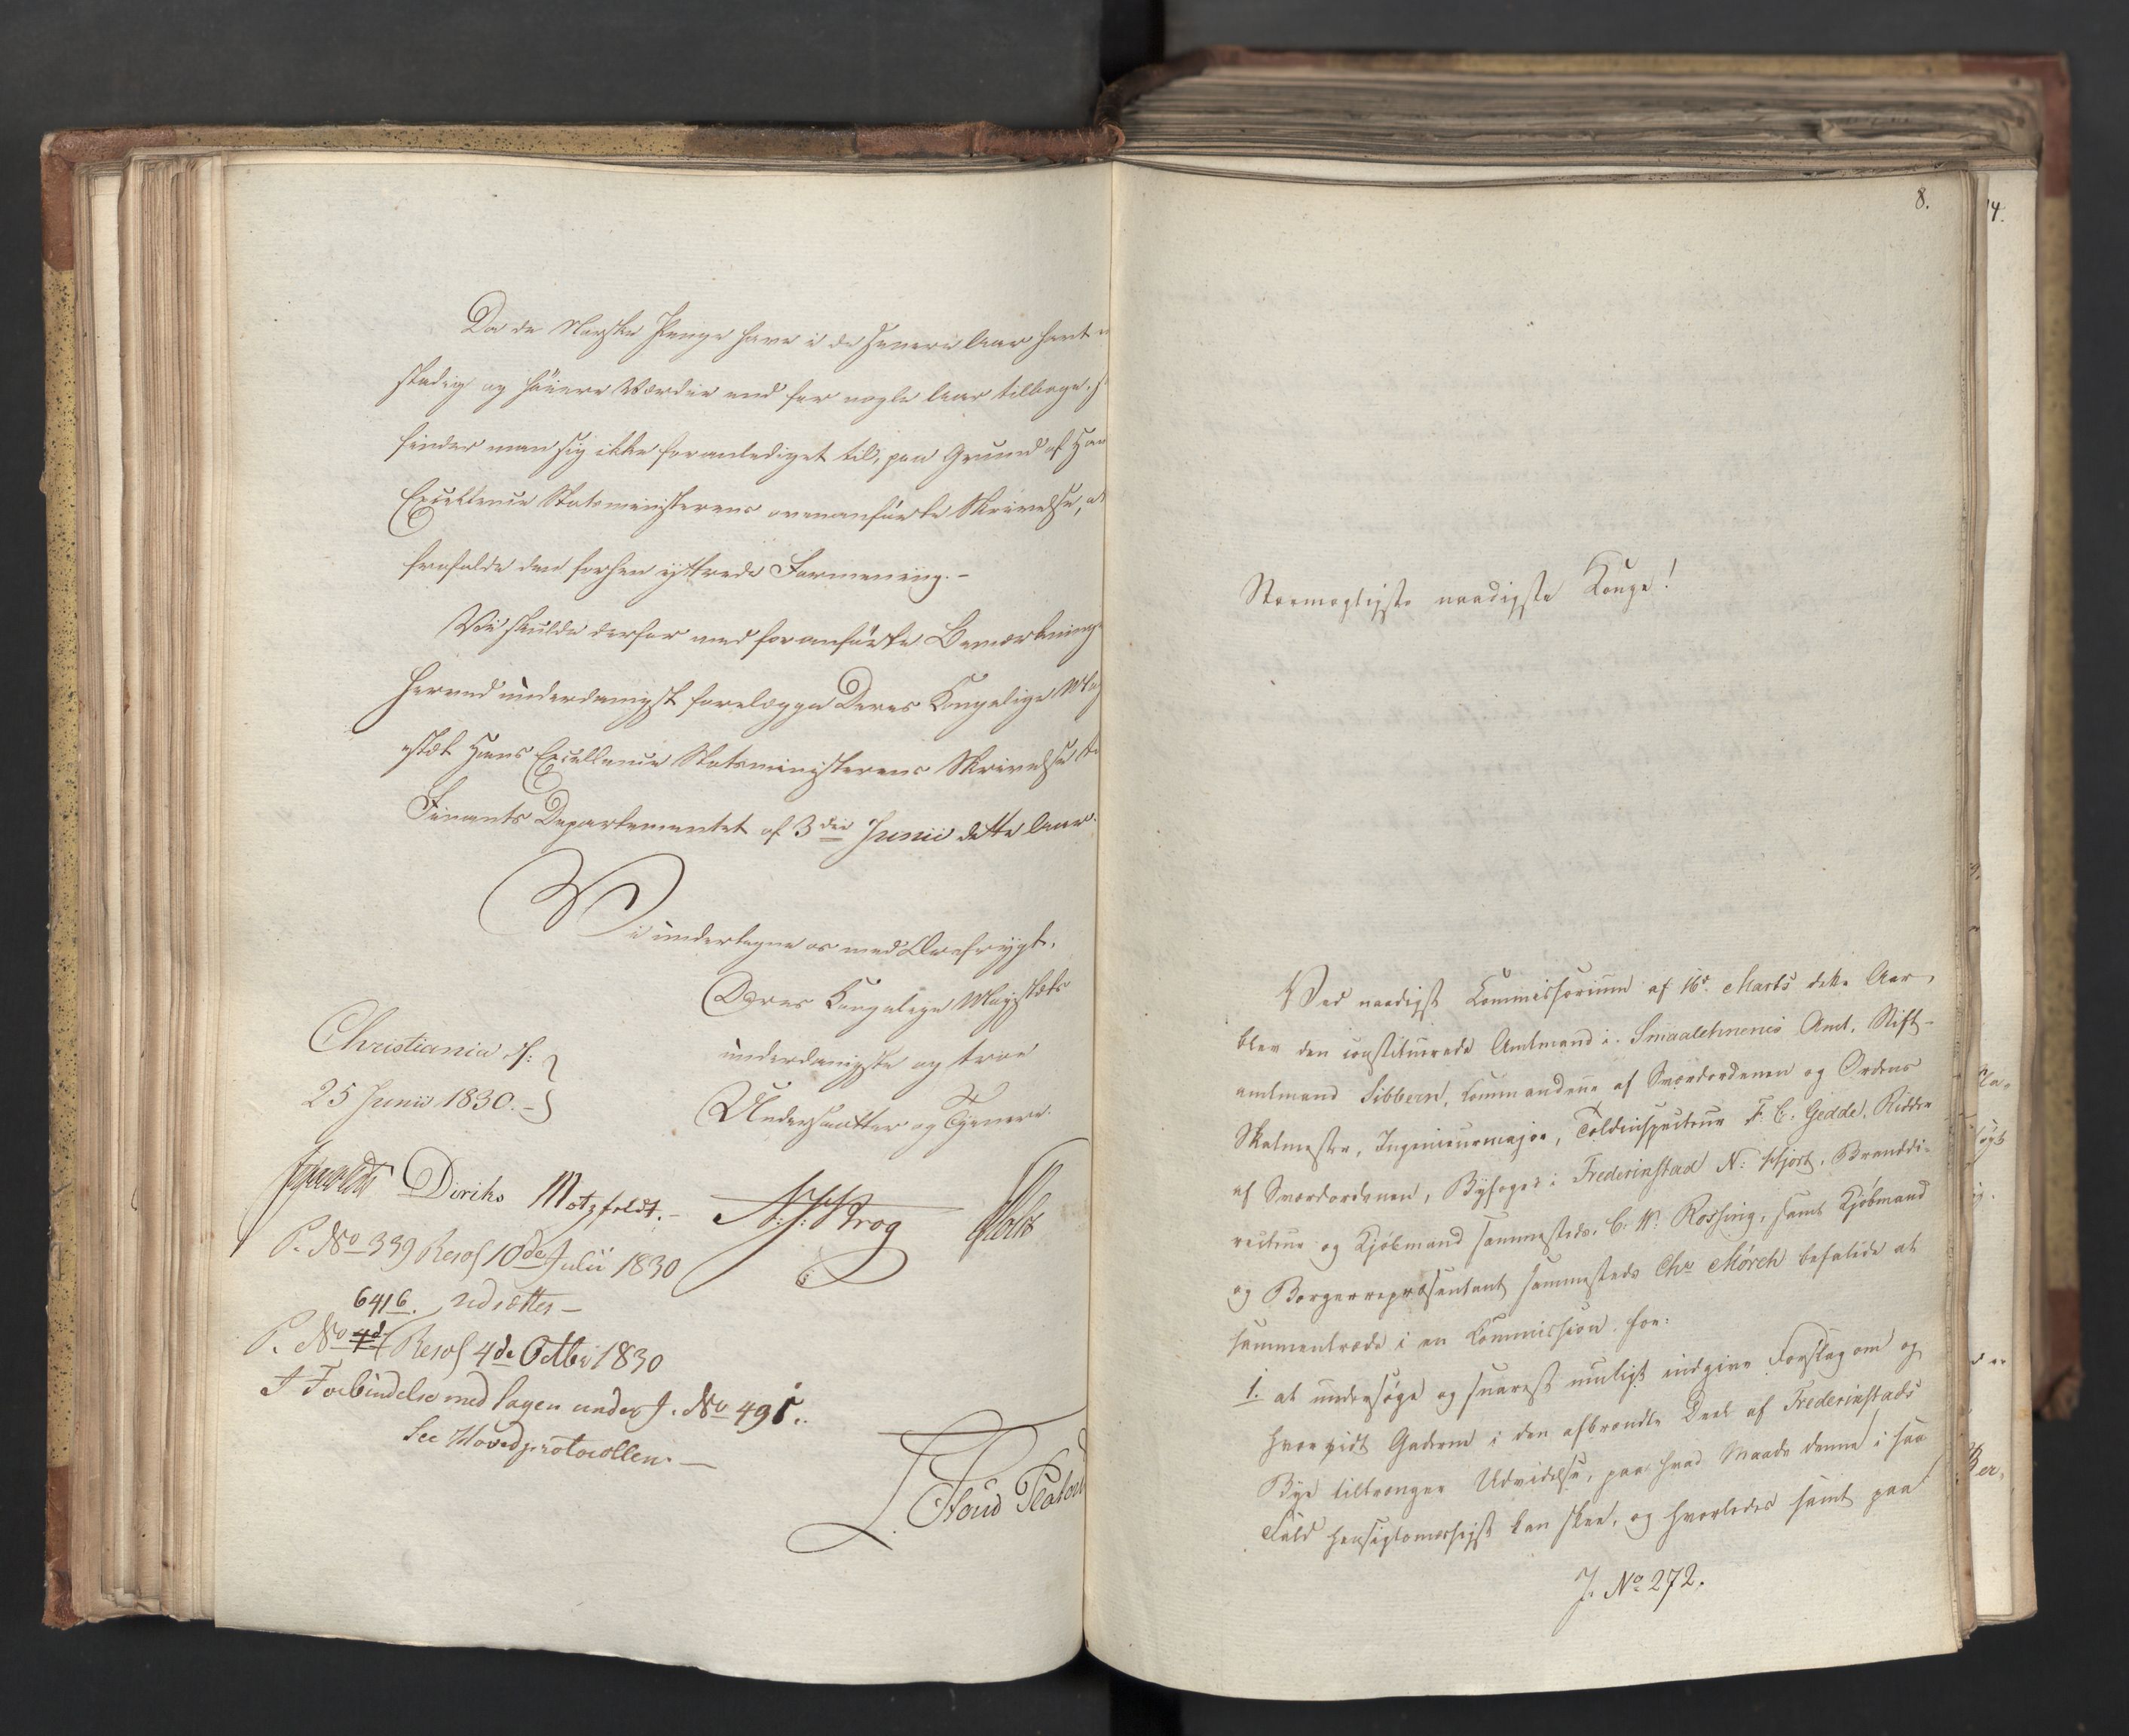 Da de Norske Penge have i de senere Aar havt e
stadig og høiere Værdie end for nogle Aar tilbage, s
finder man sig ikke foranlediget til, paa Grund af Han
Excellence Statsministerens ovenanførte Skrivelse, at
frafalde den forhen yttrede Formening.-
Vi skulde derfor med foranførte Bemærkninge
herved underdanigst forelægge Deres Kongelige Maj
estæt Hans Excellence Statsministerens Skrivelse ti
Finants Departementet af 3die Junii dette Aar.
Vi undertegne os med Ærefrygt,
Deres Kongelige Majestæts
underdanigste og troe
Undersaatter og Tjenere.
Christiania d:
25 Junii 1830.-
Diriks Motzfeldt.- Krog Holst
P. No 339 Resol 10de Julii 1830
6416. udsættes-
P. No 4d Resol 4de Octbr 1830
I Forbindelse med Sagen under J. No 491..
See Hovedprotocollen.-
8.
14.
Stormægtigste naadigste Konge!
Ved naadigst Commissorium af 16d. Marts dette Aar,
blev den constituerede Amtmand i Smaalehnenes Amt, Stift-
amtmand Sibbern, Commandeur af Sværdordenen og Ordens
Skatmester, Ingenieurmajor, Toldinspecteur F. C. Gedde, Ridder
af Sværdordenen, Byfoged i Frederikstad N: Hjort, Branddi-
recteur og Kjøbmand sammesteds, C. W. Rossing, samt Kjøbmand
og Borgerrepræsentant sammesteds Chr Mørch befalede at
sammentræde i en Commission for:
1. at undersøge og snarest muligst indgive Forslag om og
hvorvidt Gaderne i den afbrændte Deel af Frederikstads
Bye tiltrænger Udvidelse, paa hvad Maade denne i saa
Fald hensigtsmæssigst kan skee, og hvorledes samt paa
J. No 272.